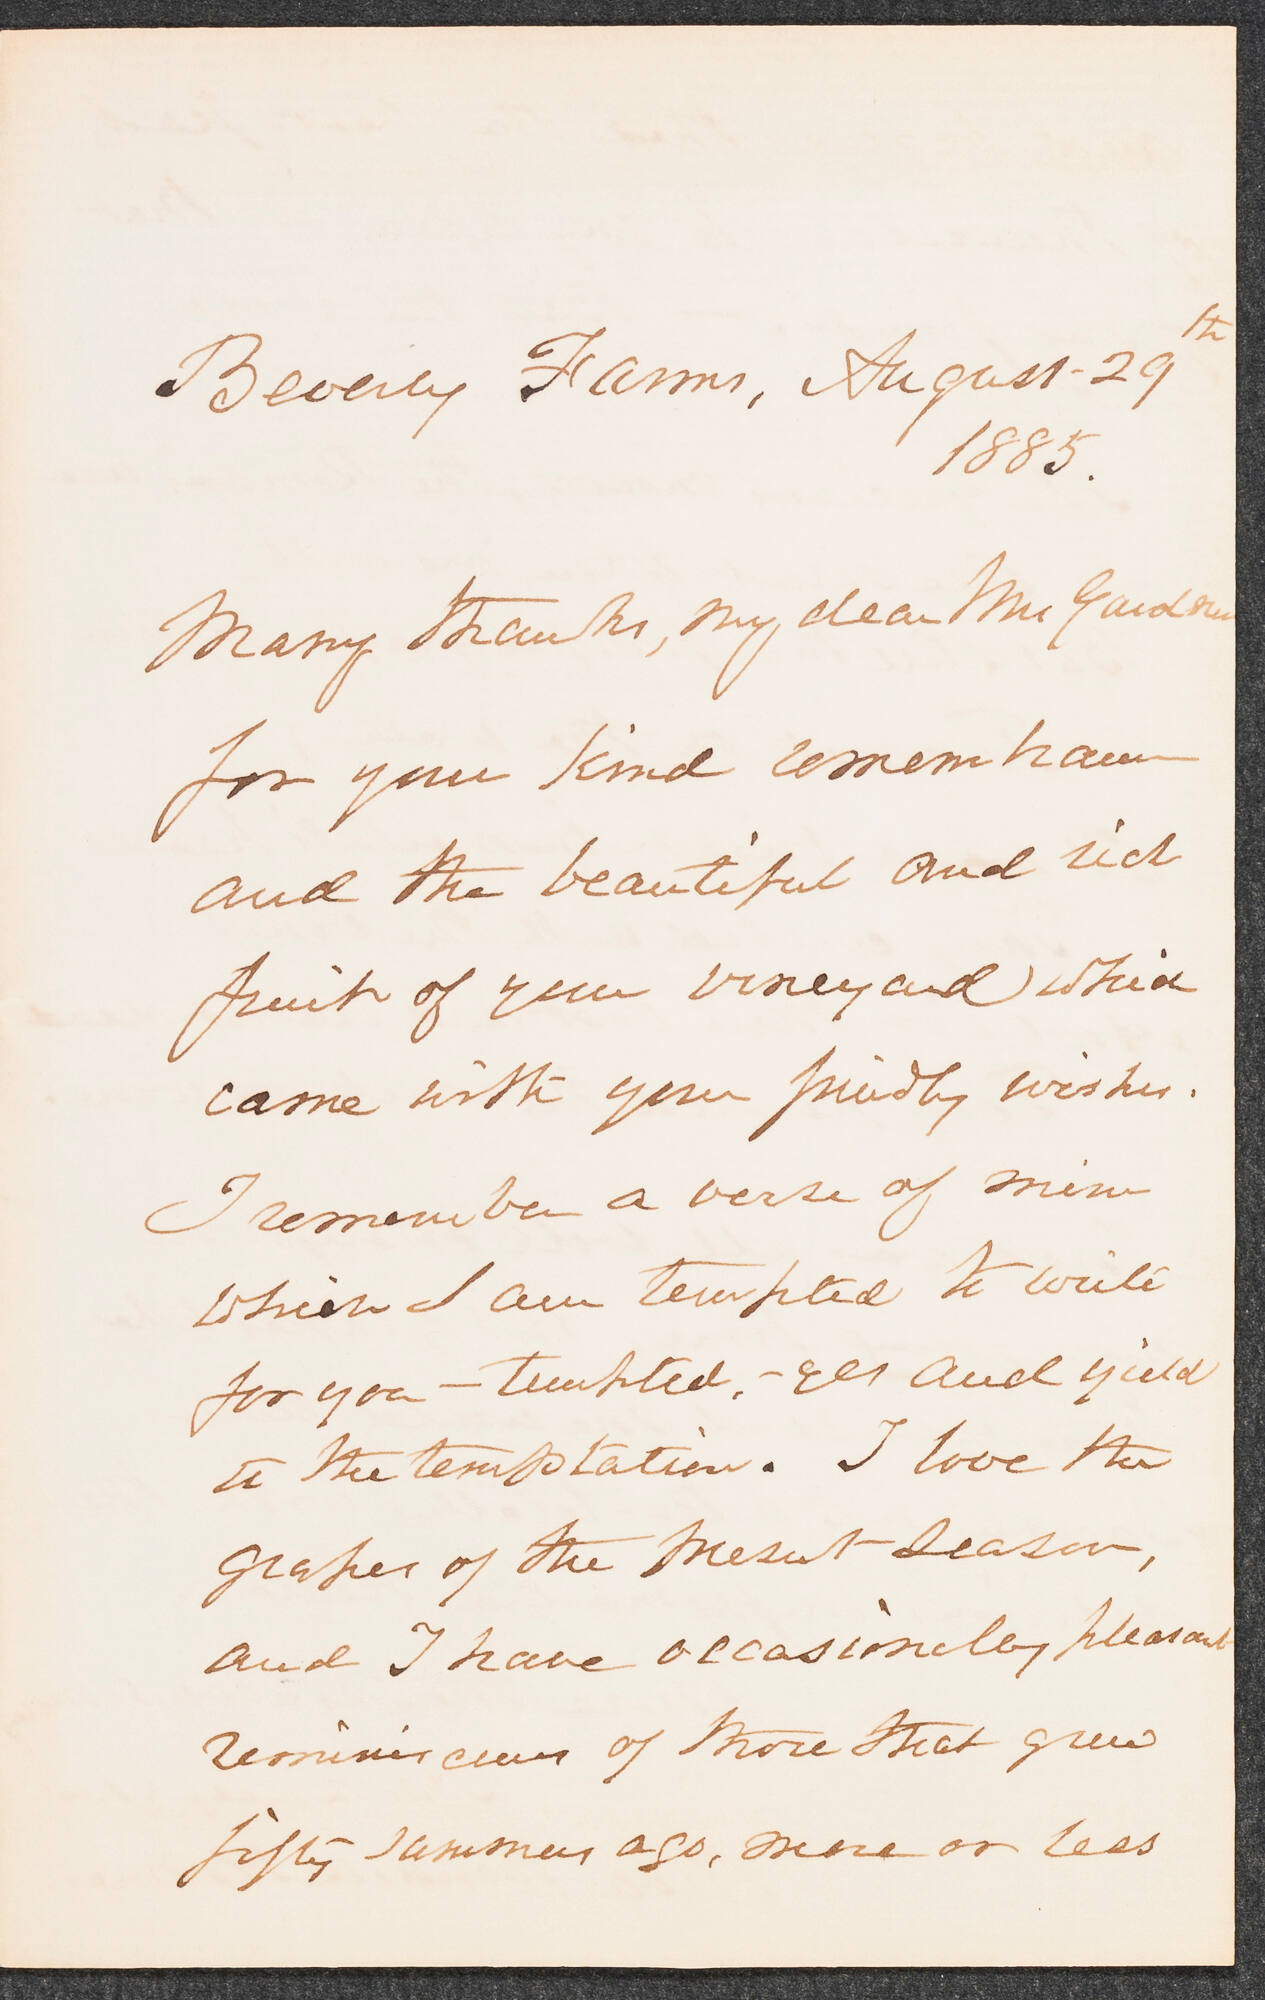 Beverly Farms, August 29th
1885.
Many thanks, my dear Mrs Gardner
for your kind remembrance
and the beautiful and rich
fruit of your vineyard which
came with your friendly wishes.
I remember a verse of mine
which I am tempted to write
for you — tempted, - yes and yield
to the temptation. I love the
grapes of the present season,
and I have occasionaly pleasant
reminiscences of those that grew
fifty summers ago, more or less